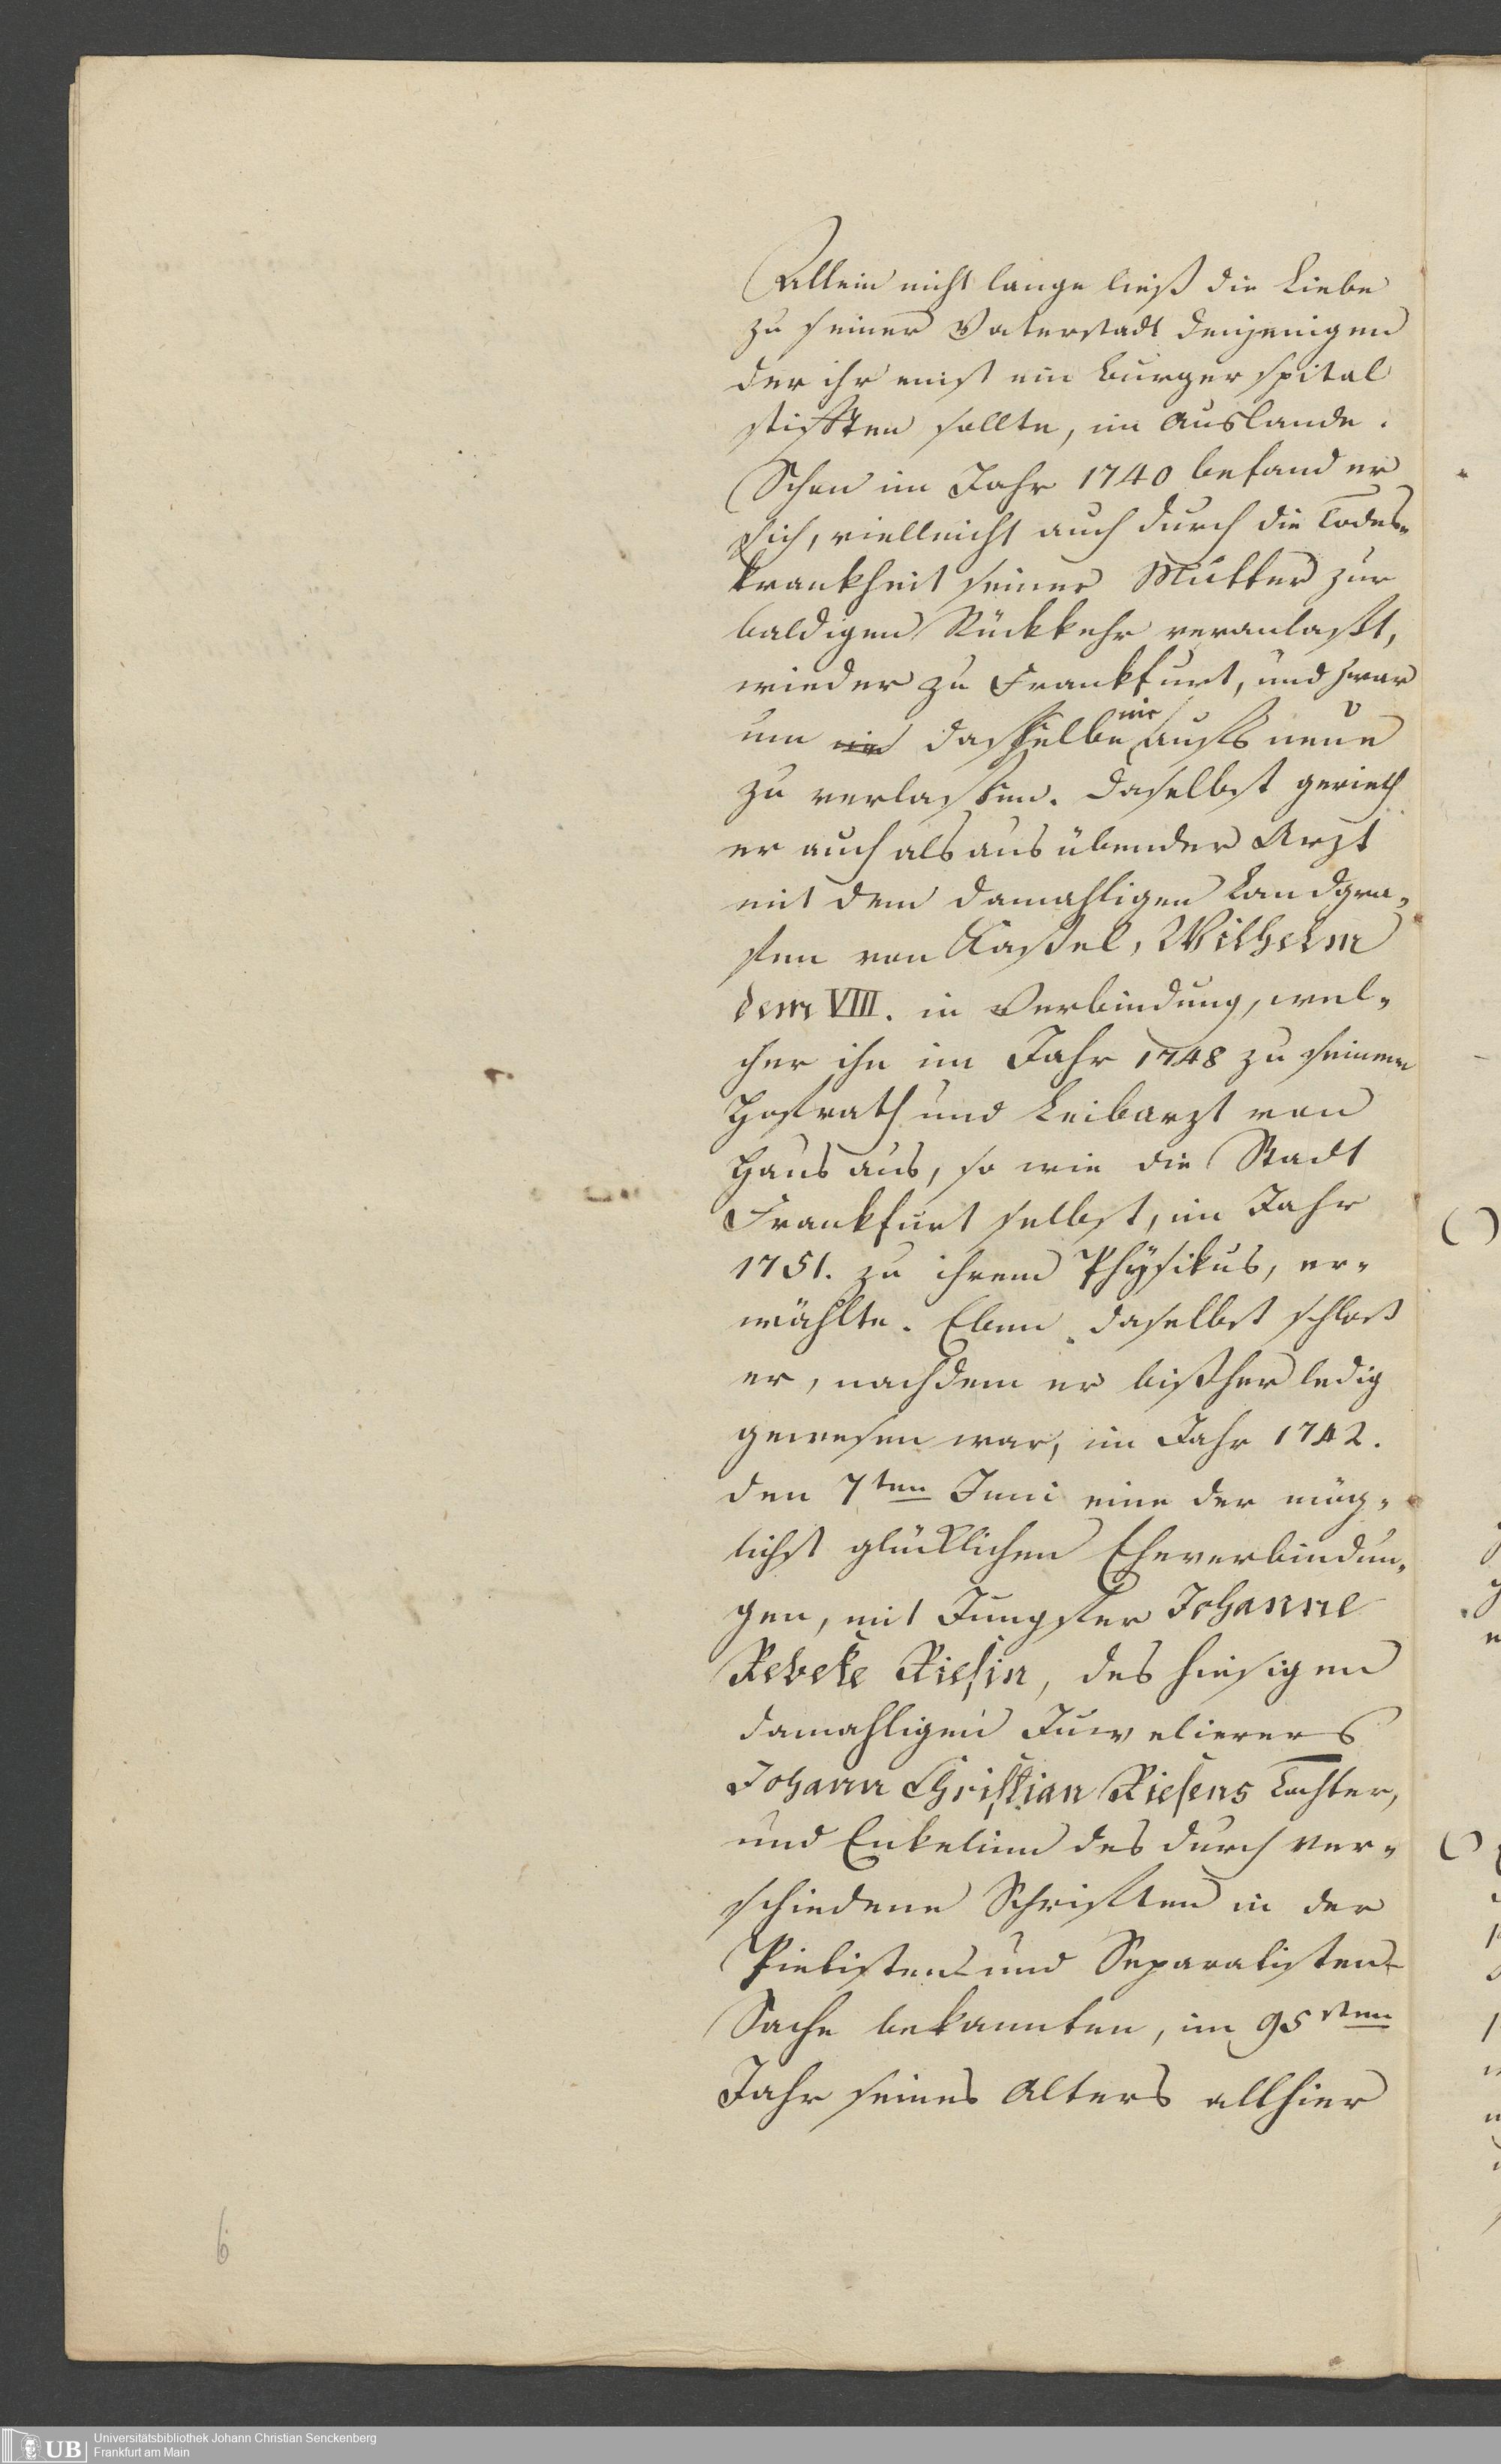 Allein nicht lange ließ die Liebe
zu seiner Vaterstadt denjenigen
der ihr einst ein Burgerspital
stifften sollte, im Auslande.
Schon im Jahr 1740 befand er
sich, vielleicht auch durch die Todes-
krankheit seiner Mutter zur
baldigen Rückkehr veranlaßt,
wieder zu Frankfurt, und zwar
um nie dasselbe nie aufs neue
zu verlassen. Daselbst gerieth
er auch als ausübender Arzt
mit dem damahligen Landgra-
fen von Kassel, Wilhelm
dem VIII. in Verbindung, wel-
cher ihn im Jahr 1748 zu seinem
Hofrath und Leibarzt von
Haus aus, so wie die Stadt
Frankfurt selbst, im Jahr
1751. zu ihrem Physikus, er-
wählte. Eben daselbst schloß
er, nachdem er bißher ledig
gewesen war, im Jahr 1742.
den 7ten Juni eine der mög-
lichst glücklichen Eheverbindun-
gen, mit Jungfer Johanne
Rebeke Riesin, des hiesigen
damahligen Juwelierers
Johann Christian Riesens Tochter,
und Enkelinn des durch ver-
schiedene Schriften in der
Pietisten- und Separatisten-
Sache bekannten, im 95sten
Jahr seines Alters allhier
6
UB Universitätsbibliothek Johann Christian Senckenberg
Frankfurt am Main